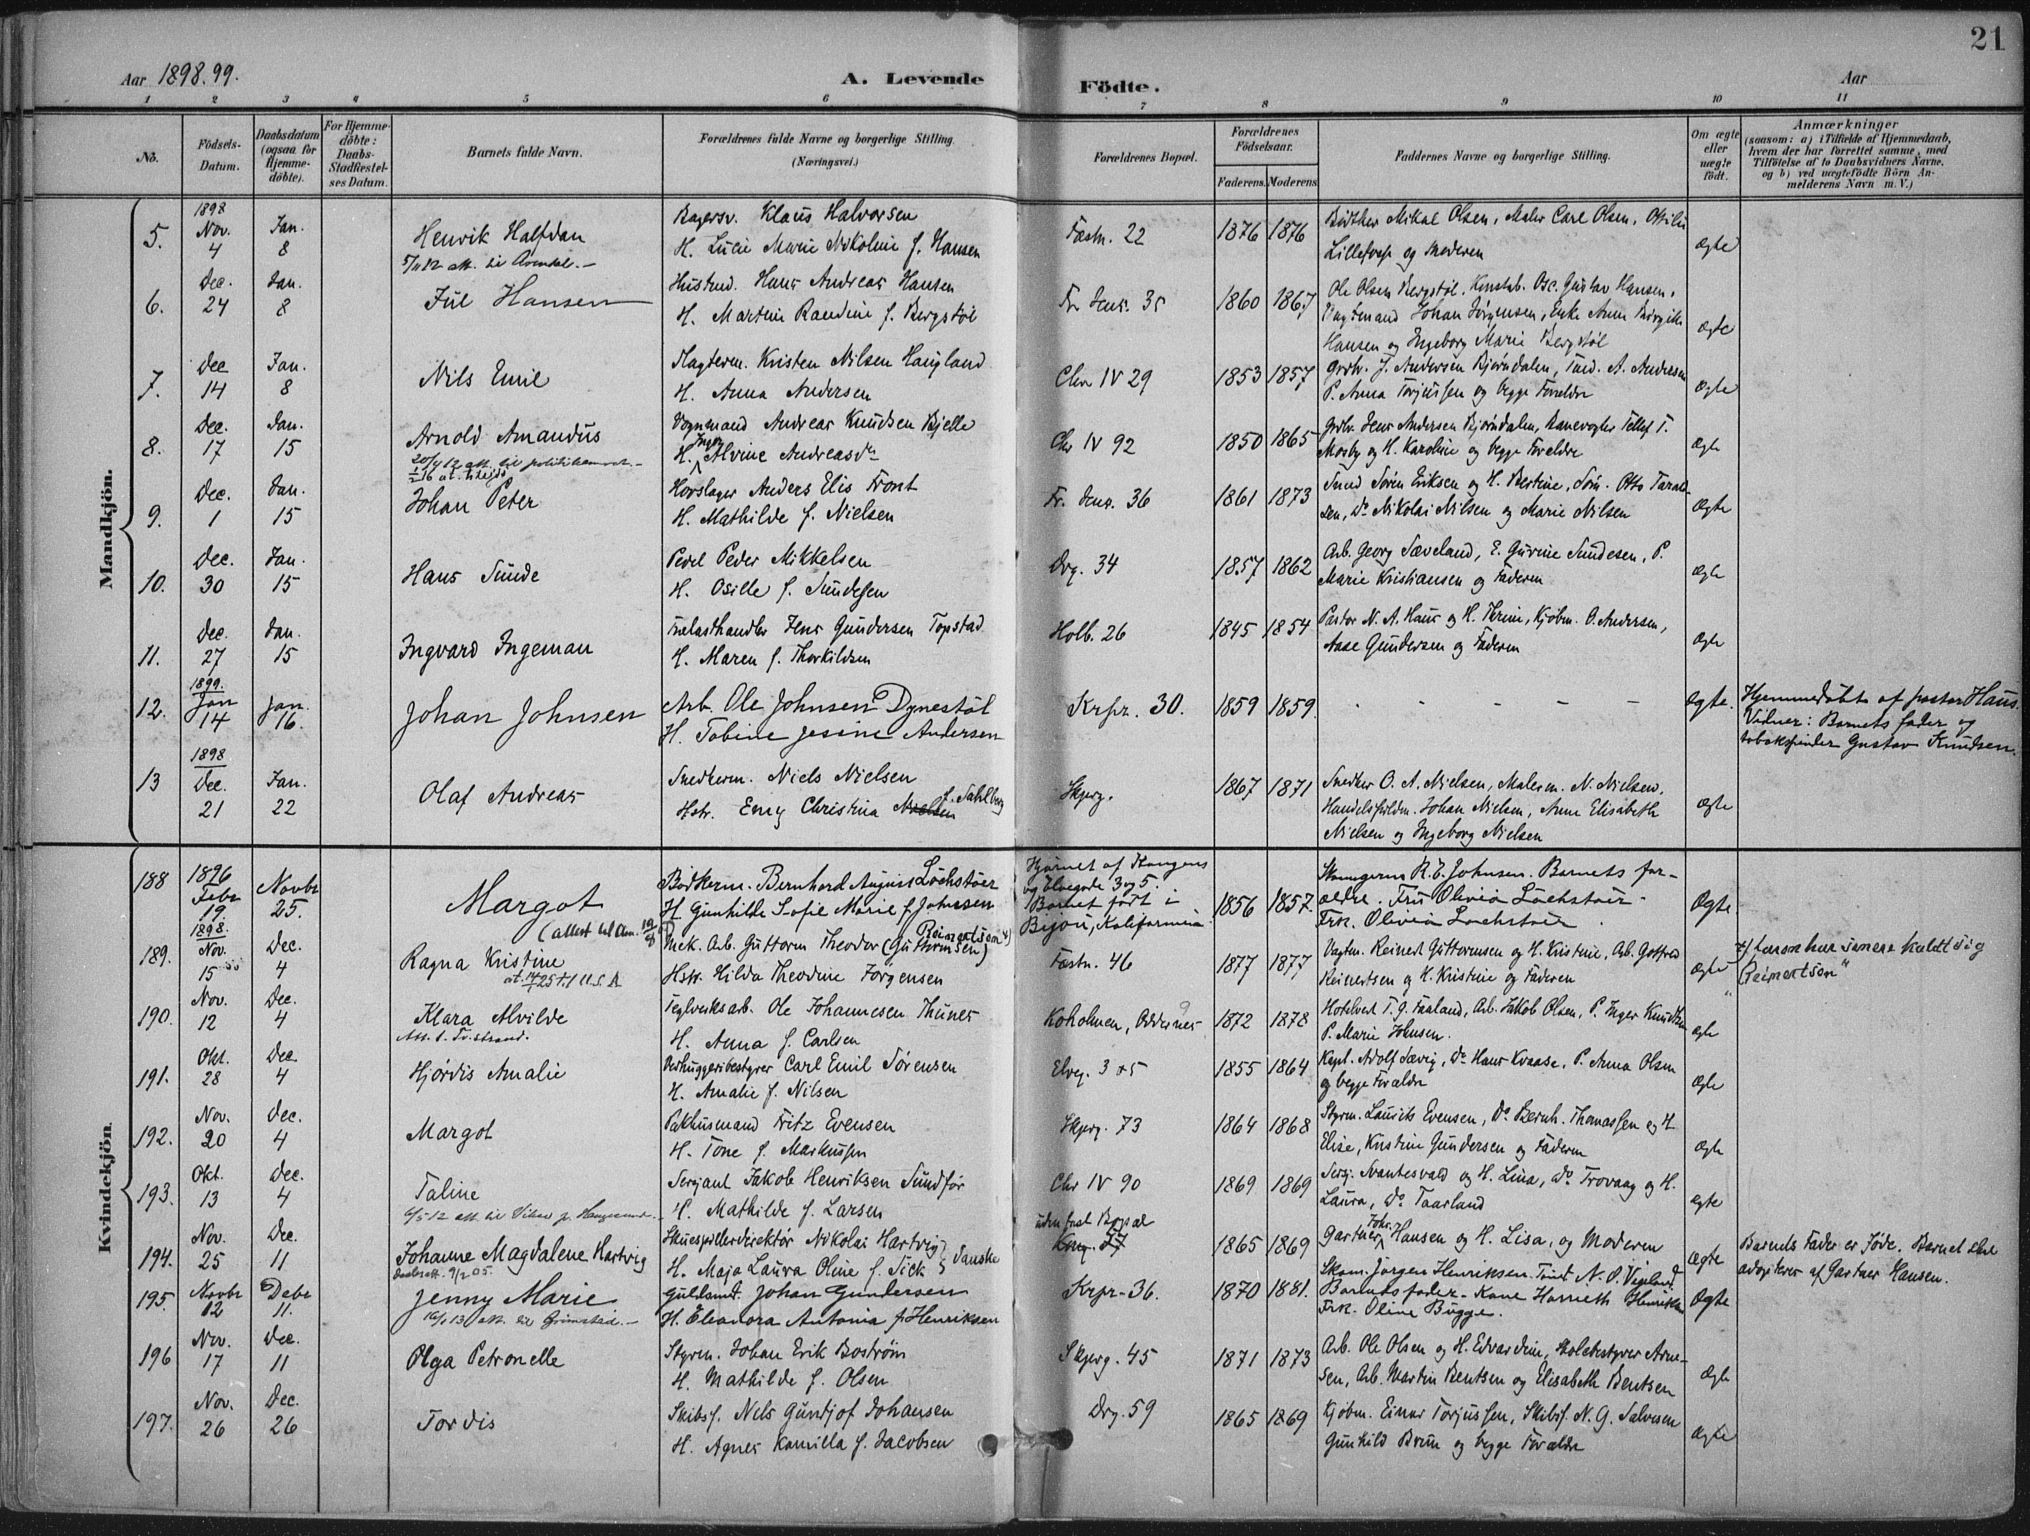 21
Aar 1898.99.
A. Levende
Födte.
Aar
1 2 3 4 5 6 7 8 9 10 11
No.
Födsels-
Datum.
Daabsdatum
(ogsaa for
Hjemme-
döbte).
For Hjemme-
döbte:
Daabs-
Stadfæstel-
ses Datum.
Barnets fulde Navn.
Forældrenes fulde Navne og borgerlige Stilling
(Næringsvei.)
Forældrenes Bopæl.
Forældrenes
Födselsaar.
Faderens. Moderens
Faddernes Navne og borgerlige Stilling.
Om ægte
eller
uægte
födt.
Anmærkninger
(saasom: a) i Tilfælde af Hjemmedaab,
hvem der har forrettet samme, med
Tilföielse af to Daabsvidners Navne,
og b) ved uægtefödte Börn An-
melderens Navn m. V.)
Mandkjön.
5. 1898 Nov. 4 Jan. 8 Henrik Halfdan
5/11 12 att. til Arendal.-
Bagersv. Klaus Halvorsen
H. Lucie Marie Nikoline f. Hansen
Fæstn. 22 1876 1876
Mikal Olsen, Maler Carl Olsen,
og Moderen
Ægte
6. Dec. 24 Jan. 8 Jul Hansen
Hans Andreas Hansen
H. Martine Randine f. Bergstøl
Fr. Denr. 35 1860 1867
Ole Olsen Bergstøl, Konstab. Osc. Gustav Hansen,
Johan Jørgensen, Enke Anne Birgitte
Hansen og Ingeborg Marie Bergstøl
Ægte
7. Dec 14 Jan. 8 Nils Emil
Kristen Nilsen Haugland
H. Anna Andersen
Chr IV 29 1853 1857
J. Andersen Bjørndalen, A. Andersen
P. Anna Torjussen og begge Forældre
Ægte
8. Dec. 17 Jan. 15 Arnold Amandus
Vognmand Andreas Knudsen Bjelle
H. Alvine Andreasdr
Chr IV 92 1850 1865
Jens Andersen Bjørndalen, Banevogter Tellef T.
Mosby og H. Karoline og begge Forældre
Ægte
9. Dec. 1 Jan. 15 Johan Peter
Hovslager Anders Elis Front
H. Mathilde f. Nielsen
Fr. Denr. 36 1861 1873
Søren Eriksen og H. Bertine, Otto Tarald-
sen, Do Nikolai Nilsen og Marie Nilsen
Ægte
10. Dec. 30 Jan. 15 Hans Sunde
Peder Mikkelsen
H. Osille f. Sundesen
Drg. 34 1857 1862
Arb. Georg Sæveland, E. Gurine Sundesen, P.
Marie Kristiansen og Faderen
Ægte
11. Dec. 27 Jan. 15 Ingvard Ingeman
Trælasthandler Jens Gundersen Topstad
H. Maren f. Thorkildsen
Holb. 26 1845 1854
Pastor N. A. Haus og H. Kjøbm. O. Andersen,
Aase Gundersen og Faderen
Ægte
12. 1899. Jan 14 Jan. 16. Johan Johnsen
Arb. Ole Johnsen Dynestøl
H. Tobine Jesine Andersen
Krpr. 30. 1859 1859
Ægte.
Hjemmedøbt af pastor Haus.
Vidner: Barnets fader og
tobakspinder Gustav Knudsen.
13 1898 Dec. 21 Jan. 22 Olaf Andreas
Snedkerm. Niels Nielsen
Hstr. Emy Christina f. Sahlberg
Skjerg. 1867 1871
Snedker O. A. Nielsen, Malerm. N. Nielsen,
Johan Nielsen, Anne Elisabeth
Nielsen og Ingeborg Nielsen
Ægte
Kvindekjön.
188 1896 Febr 19 Novbr 25. Margot
Bødkerm. Bernhard August Lochstöer
H. Gunhilde Sofie Marie f. Johnsen
Hjørnet af Kongens
og Elvegade 3 og 5.
Barnet født i
Bijou, Kalifornien
1856 1857.
R. E. Johnsen. Barnets for-
ældre. Fru Olivia Lochstöer.
Frk. Olivia Lochstöer
Ægte.
189. 1898. Nov. 15 Dec. 4 Ragna Kristine
Mek. Arb. Guttorm Theodor (Guthormsen) Reinertsen x)
Hstr. Hilda Theodine Jørgensen
Fæstn. 46 1877 1877
Vagtm. Reinert Guttormsen og H. Kristine, Arb. Gotfred
Reinertsen og H. Kristine og Faderen
Ægte
x) senere kaldt sig
"Reinertsen"
190. Nov. 12 Dec. 4 Klara Alvilde
Att. t. Tvestrand.
Teglverksarb. Ole Johannesen Thunes
H. Anna f. Carlsen
Koholmen, Oddernes 1872 1878
T. G. Faaland, Arb. Jakob Olsen, P. Inger Knudsen
P. Marie Johnsen.
Ægte
191. Okt. 28 Dec. 4 Hjördis Amalie
Carl Emil Sørensen
H. Amalie f. Nilsen
Elveg. 3 & 5 1855 1864
Kapt. Adolf Sævig, Do Hans Kvaase, P. Anna Olsen
og begge Forældre
Ægte
192. Nov. 20 Dec. 4 Margot
Pakhusmand Fritz Evensen
H. Tone f. Markussen
Skjerg. 73 1864 1868
Styrm. Laurits Evensen, Do Bernh. Thomassen og H.
Elise, Kristine Gundersen og Faderen
Ægte
193. Okt. 13 Dec. 4 Taline
Serjant Jakob Henriksen Sundfør
H. Mathilde f. Larsen
Chr IV 90 1869 1869
Serg. Svantesvold og H. Lina, Do Trovaag og H.
Laura, Do Taarland
Ægte
194. Nov. 25 Dec. 11 Johanne Magdalene Hartvig
Skuespillerdirektør Nikolai Hartvig
H. Maja Laura Oline f. Fick } Danske
uden fast Bopæl
1865 1869
Gartner Johs. Hansen og H. Lisa, og Moderen
Ægte
Barnets Fader er Jøde. Barnet skal
adopteres af Gartner Hansen.
195. Novbr 12 Debr 11. Jenny Marie
16/1 13 att. til Grimstad.-
Guldsmt. Johan Gundersen
H. Eleanora Antonia f. Henriksen
Krpr. 36. 1870 1881.
Skom. Jörgen Henriksen. Tønd. N. O. Vigeland
Barnets fader - Kone Harrieth Henriksen
Frk. Oline Bugge.
Ægte
196 Nov. 17 Dec. 11 Olga Petronelle
Styrm. Johan Erik Boström
H. Mathilde f. Olsen
Skjerg. 45 1871 1873
Arb. Ole Olsen og H. Edvardine, Skolebestyrer Arne-
sen, Arb. Martin Bentsen og Elisabeth Bentsen
Ægte
197. Nov. 26 Dec. 26 Tordis
Skibsf. Nils Gundjof Johansen
H. Agnes Kamilla f. Jacobsen
Drg. 59 1865 1869
Kjøbm. Einar Torjussen, Skibsf. N. G. Salvesen
Gunhild Bruun og begge Forældre
Ægte